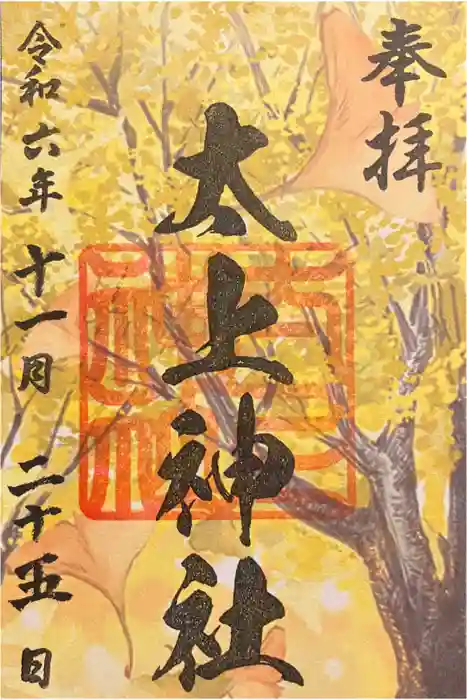 奉拝
太上神社
令和六年十一月二十五日